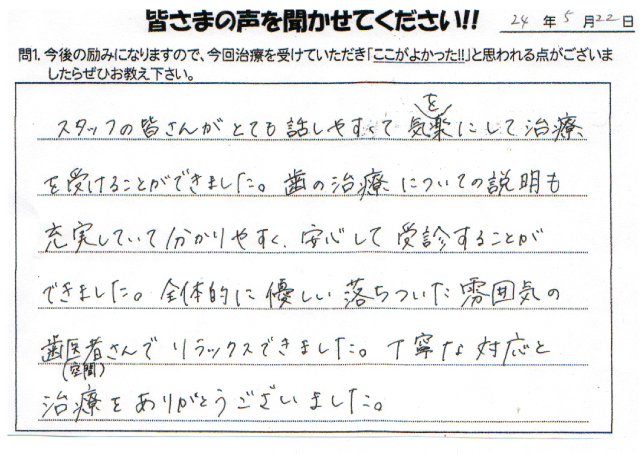 皆さまの声を聞かせてください!!
24 年 5 月 22 日
問1. 今後の励みになりますので、今回治療を受けていただき「ここがよかった!!」と思われる点がございま
したらぜひお教え下さい。
を
スタッフの皆さんがとても話しやすくて 気楽にして治療
を受けることができました。歯の治療についての説明も
充実していて分かりやすく、安心して受診することが
できました。全体的に優しい落ちついた雰囲気の
歯医者さんでリラックスできました。丁寧な対応と
(空間)
治療をありがとうございました。